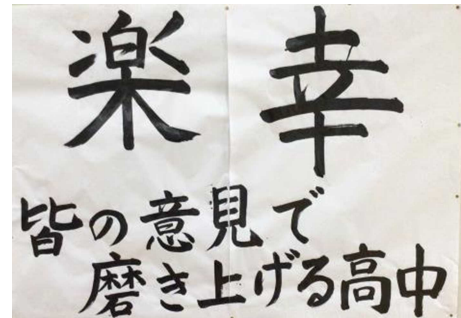 楽 幸
皆の意見で
磨き上げる高中